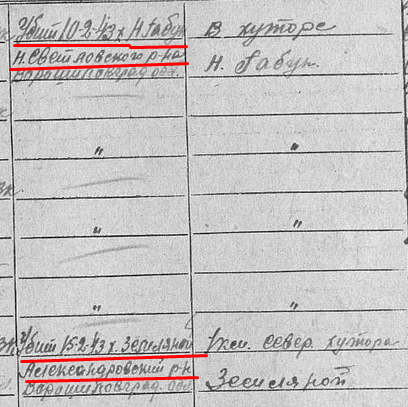 Убит 10-2-43 х. Н. Габун
Н. Светловского р-на
Ворошиловград. обл.
В хуторе
Н. Габун.
"
"
"
"
"
"
Убит 15-2-43 х. Земляной
Александровский р-н
Ворошиловград. обл.
1 км. север. хутора
Земляной